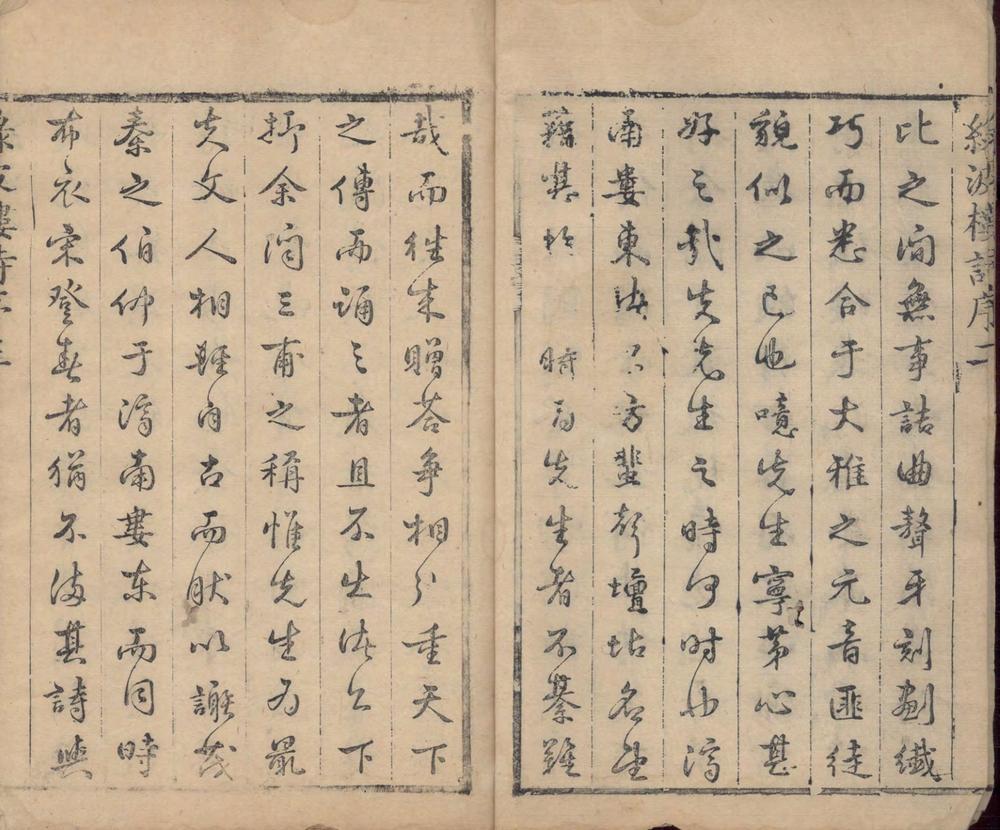 綠波樓詩序 二
比之間無事詰曲聱牙刻劃纖
巧而悉合于大雅之元音匪徒
貌似之已也噫先生寧第心甚
好之哉夫先生之時何時也濟
南婁東 方蜚聲壇坫名
藉甚 時而先生者不綦難
哉而往來贈荅爭相引重天下
之傳而誦之者且不出諸公下
抑余聞三甫之稱惟先生為最
夫文人相輕自古而狀以謝茂
秦之伯仲于濟南婁東而同時
布衣宋登春者猶不滿其詩與